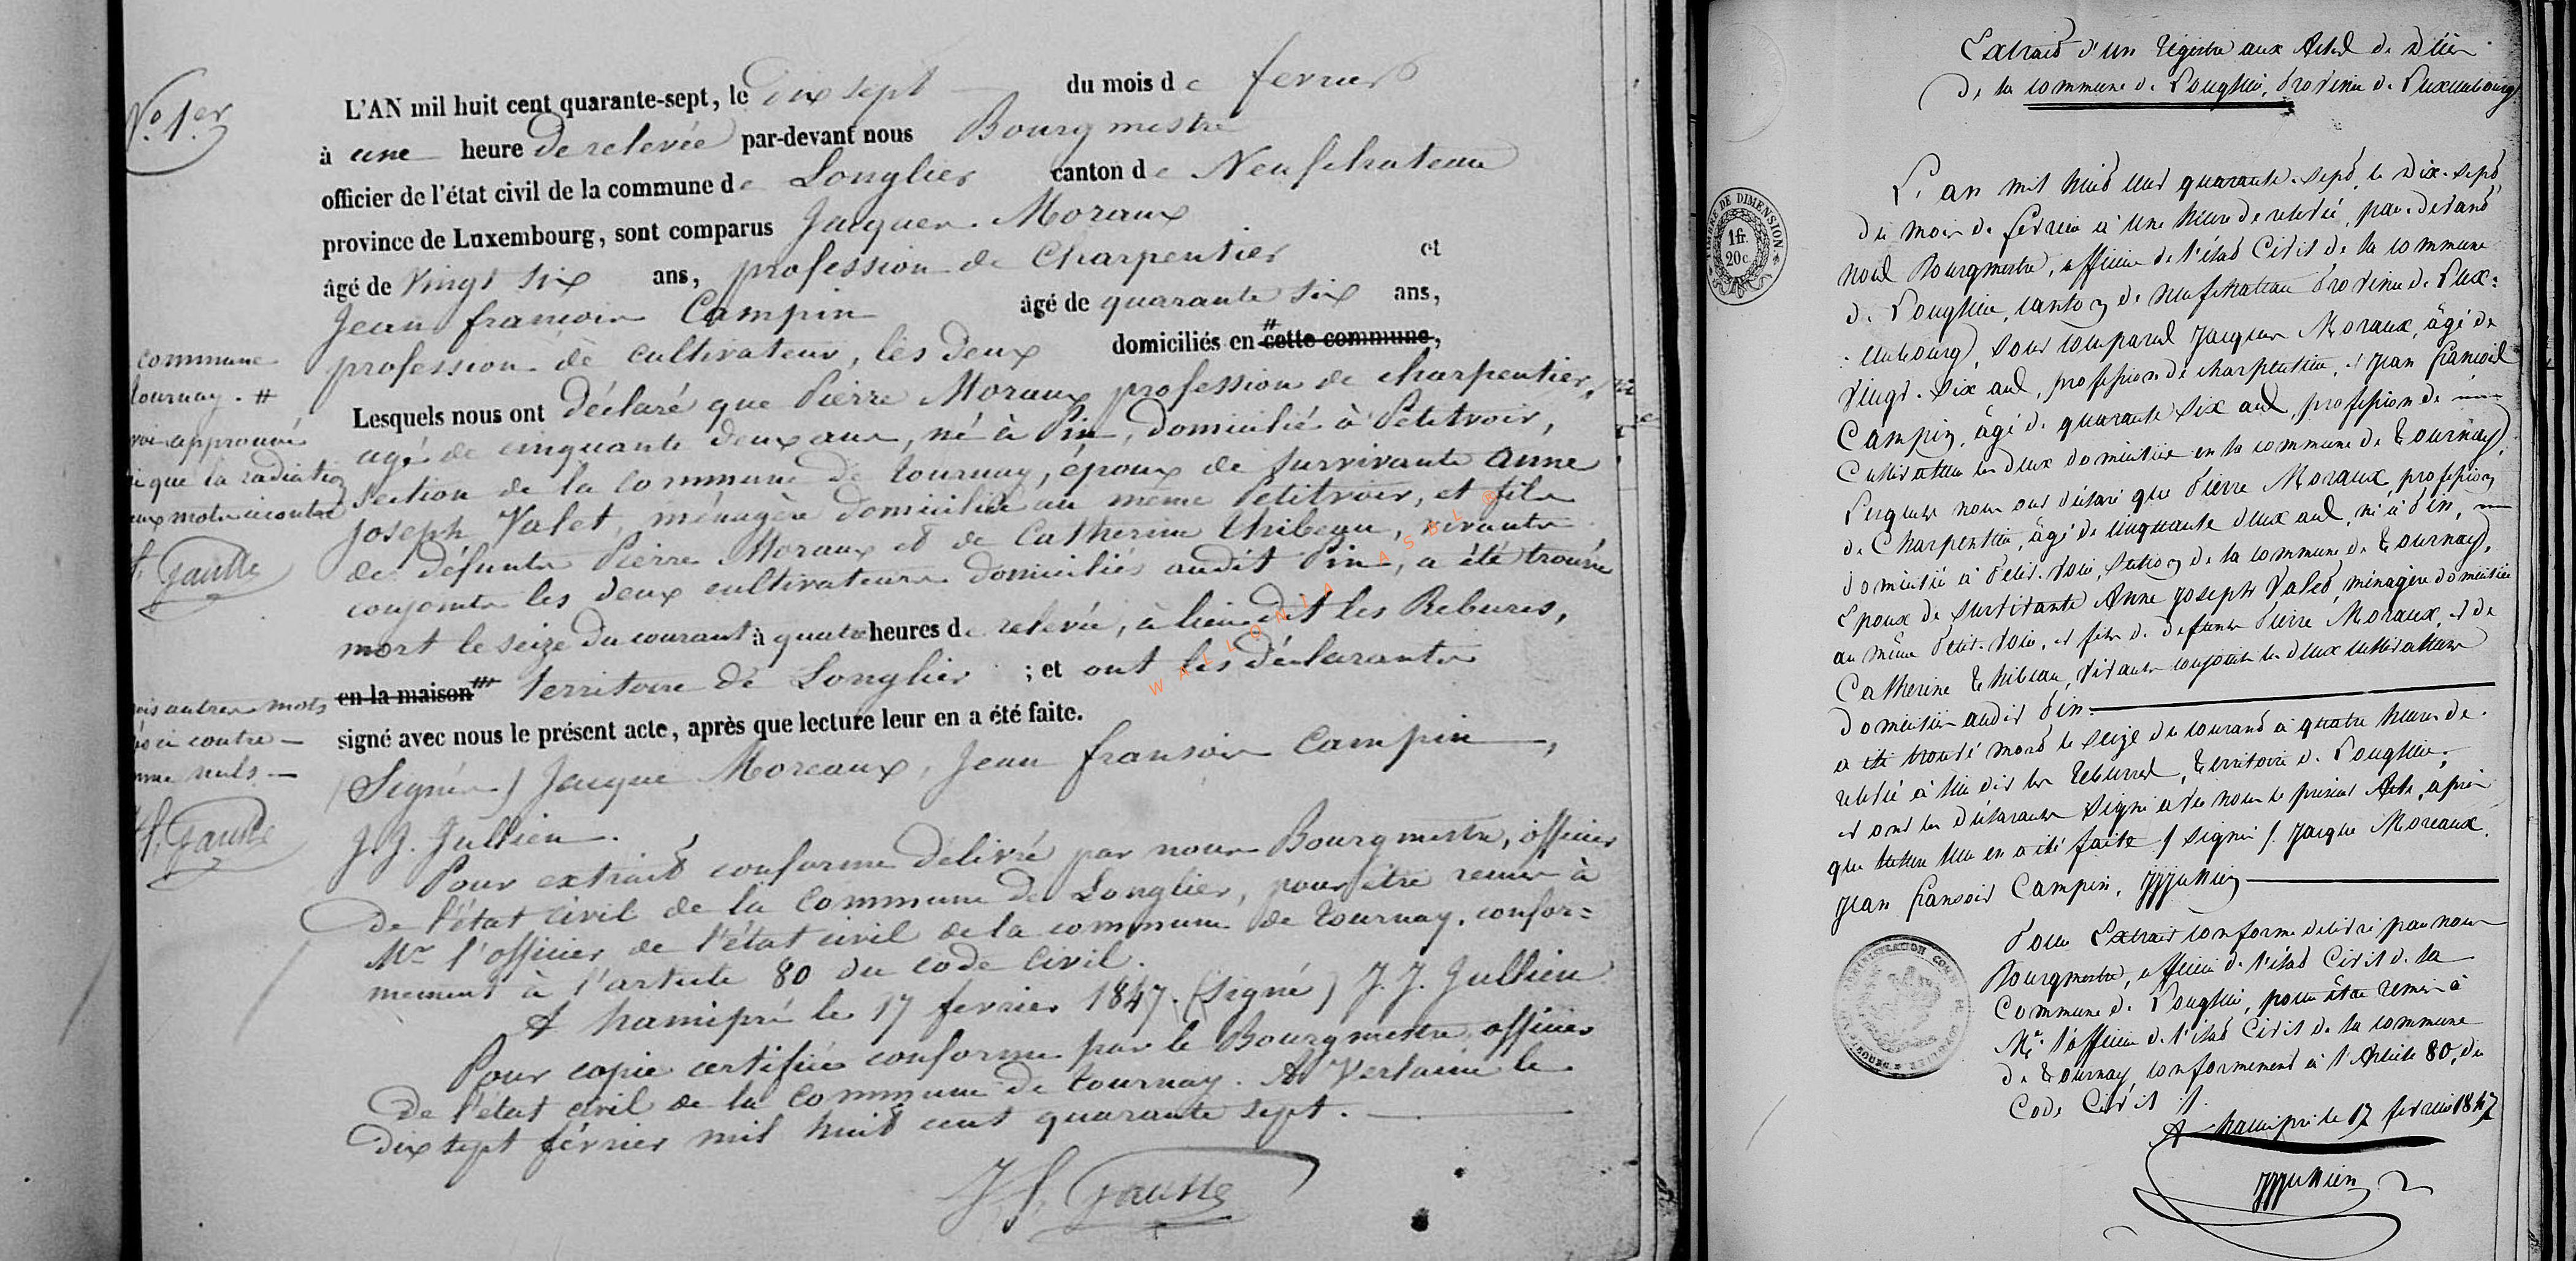 N.o 1.er
L'AN mil huit cent quarante-sept, le dix sept du mois de fevrier
à une heure de relevée par-devant nous Bourgmestre
officier de l'état civil de la commune de Longlier canton de Neufchateau
province de Luxembourg, sont comparus Jacques Moraux
âgé de vingt six ans, profession de Charpentier et
Jean françois Campin âgé de quarante six ans,
profession de cultivateur, les deux domiciliés en # cette commune,
Lesquels nous ont déclaré que Pierre Moraux profession de charpentier,
agé de cinquante deux ans, né à Pin, domicilié à Petitvoir,
section de la commune de tournay, époux de survivante Anne
joseph Valet, ménagère domiciliée au même Petitvoir, et fils
de défunts Pierre Moraux et de Catherine thibeau, vivants
conjoints les deux cultivateurs domiciliés audit Pin, a été trouvé
mort le seize du courant à quatre heures de relevée, à lieu dit les Rebures,
en la maison territoire de Longlier ; et ont les déclarants
signé avec nous le présent acte, après que lecture leur en a été faite.
(Signés) Jacque Moreaux, Jean fransois Campin,
J. J. Jullien.
Pour extrait conforme délivré par nous Bourgmestre, officier
de l'état civil de la commune de Longlier, pour être remis à
Mr l'officier de l'état civil de la commune de tournay, confor=
mement à l'article 80 du code civil.
A hamipré le 17 fevrier 1847. (signé) J. J. Jullien
Pour copie certifiée conforme par le Bourgmestre, officier
de l'état civil de la commune de tournay. A Verlaine le
dix sept février mil huit cent quarante sept.
commune
tournay. #
approuvé
que la radiation
mots ci contre
autres mots
ci contre
nuls
WALLONIA ASBL ©
Extrait d'un Registre aux Actes de Décès
de la commune de Longlier, Province de Luxembourg
L'an mil huit cent quarante-sept, le dix-sept
du mois de fevrier à une heure de relevée, par-devant
nous Bourgmestre, officier de l'état Civil de la commune
de Longlier, canton de Neufchateau Province de Lux=
=embourg, sont comparus Jacques Moraux, âgé de
vingt-six ans, profession de charpentier, et Jean françois
Campin, âgé de quarante six ans, profession de
Cultivateur les deux domiciliés en la commune de Tournay,
Lesquels nous ont déclaré que Pierre Moraux profession
de Charpentier, âgé de cinquante deux ans, né à Pin,
domicilié à Petit-voir, section de la commune de Tournay,
Epoux de survivante Anne Joseph Valet, ménagère domiciliée
au même Petit-voir, et fils de defunts Pierre Moraux, et de
Catherine Thibeau, vivants conjoints les deux cultivateurs
domiciliés audit Pin.
a été trouvé mort le seize du courant à quatre heures de
relevée à lieu dit les Rebures, Territoire de Longlier,
et ont les déclarants signé avec nous le présent Acte, après
que lecture leur en a été faite / signés / Jacque Moreaux,
Jean fransois Campin, JJJullien
Pour Extrait conforme délivré par nous
Bourgmestre, officier de l'état Civil de la
Commune de Longlier, pour être remis à
Mr. l'officier de l'état Civil de la commune
de Tournay, conformement à l'Article 80, du
Code Civil.
A hamipré le 17 fevrier 1847
JJJullien
TIMBRE DE DIMENSION
1 fr.
20 c